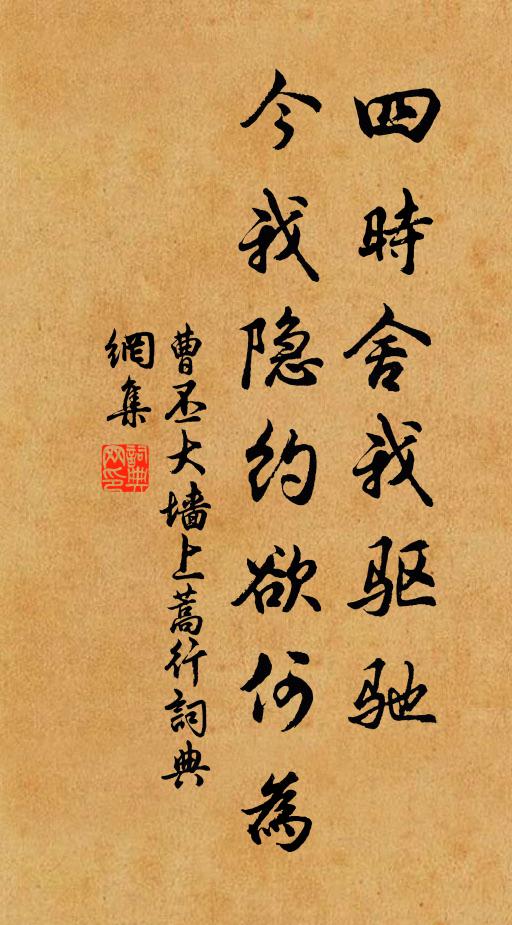 四時舍我驱驰
今我隐约欲何為
曹丕大墙上蒿行詞典
網集
詞典
网印